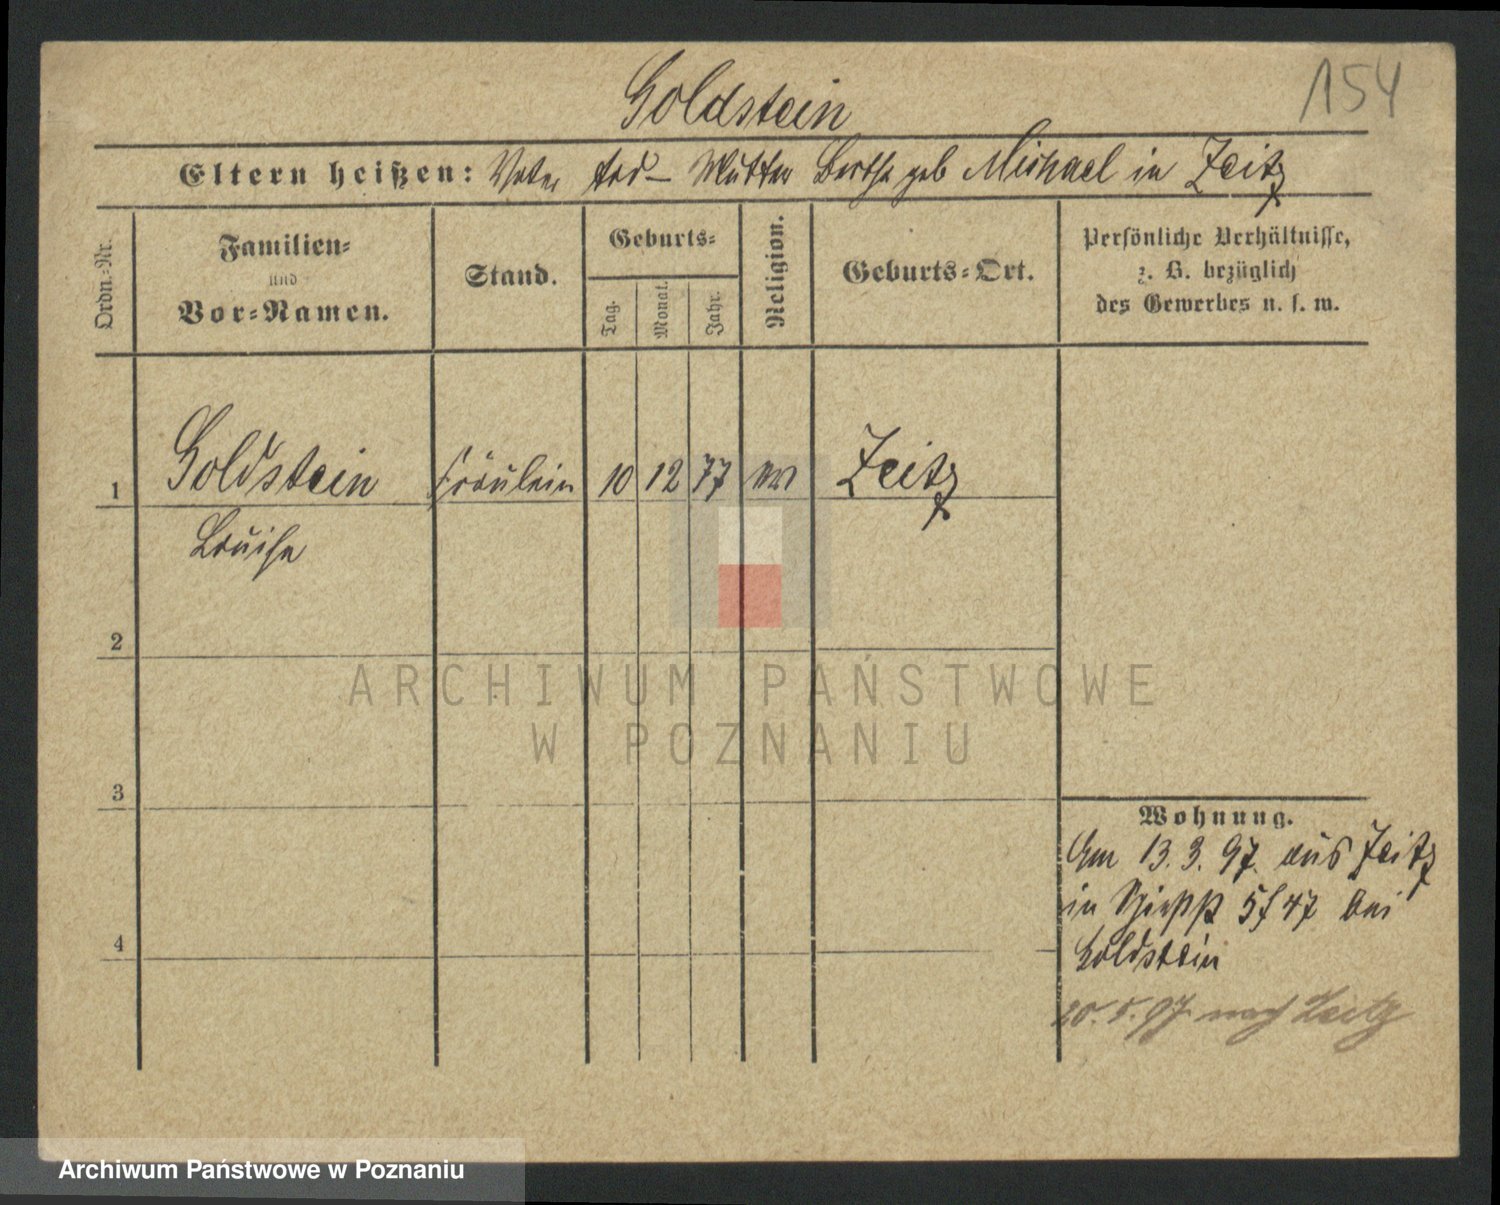 154
Goldstein
Eltern heißen: Vater tod – Mutter Bertha geb Michael in Zeitz
Ordn.-Nr.
Familien-
und
Vor-Namen.
Stand.
Geburts-
Tag.
Monat.
Jahr.
Religion.
Geburts-Ort.
Persönliche Verhältnisse,
z. B. bezüglich
des Gewerbes u. s. w.
1 Goldstein Fräulein 10 12 77 Zeitz
Louise
2
3
4
Wohnung.
Am 13.3.97. aus Zeitz
in 47 bei
Goldstein
20.5.97 nach Zeitz
ARCHIWUM PAŃSTWOWE
W POZNANIU
Archiwum Państwowe w Poznaniu